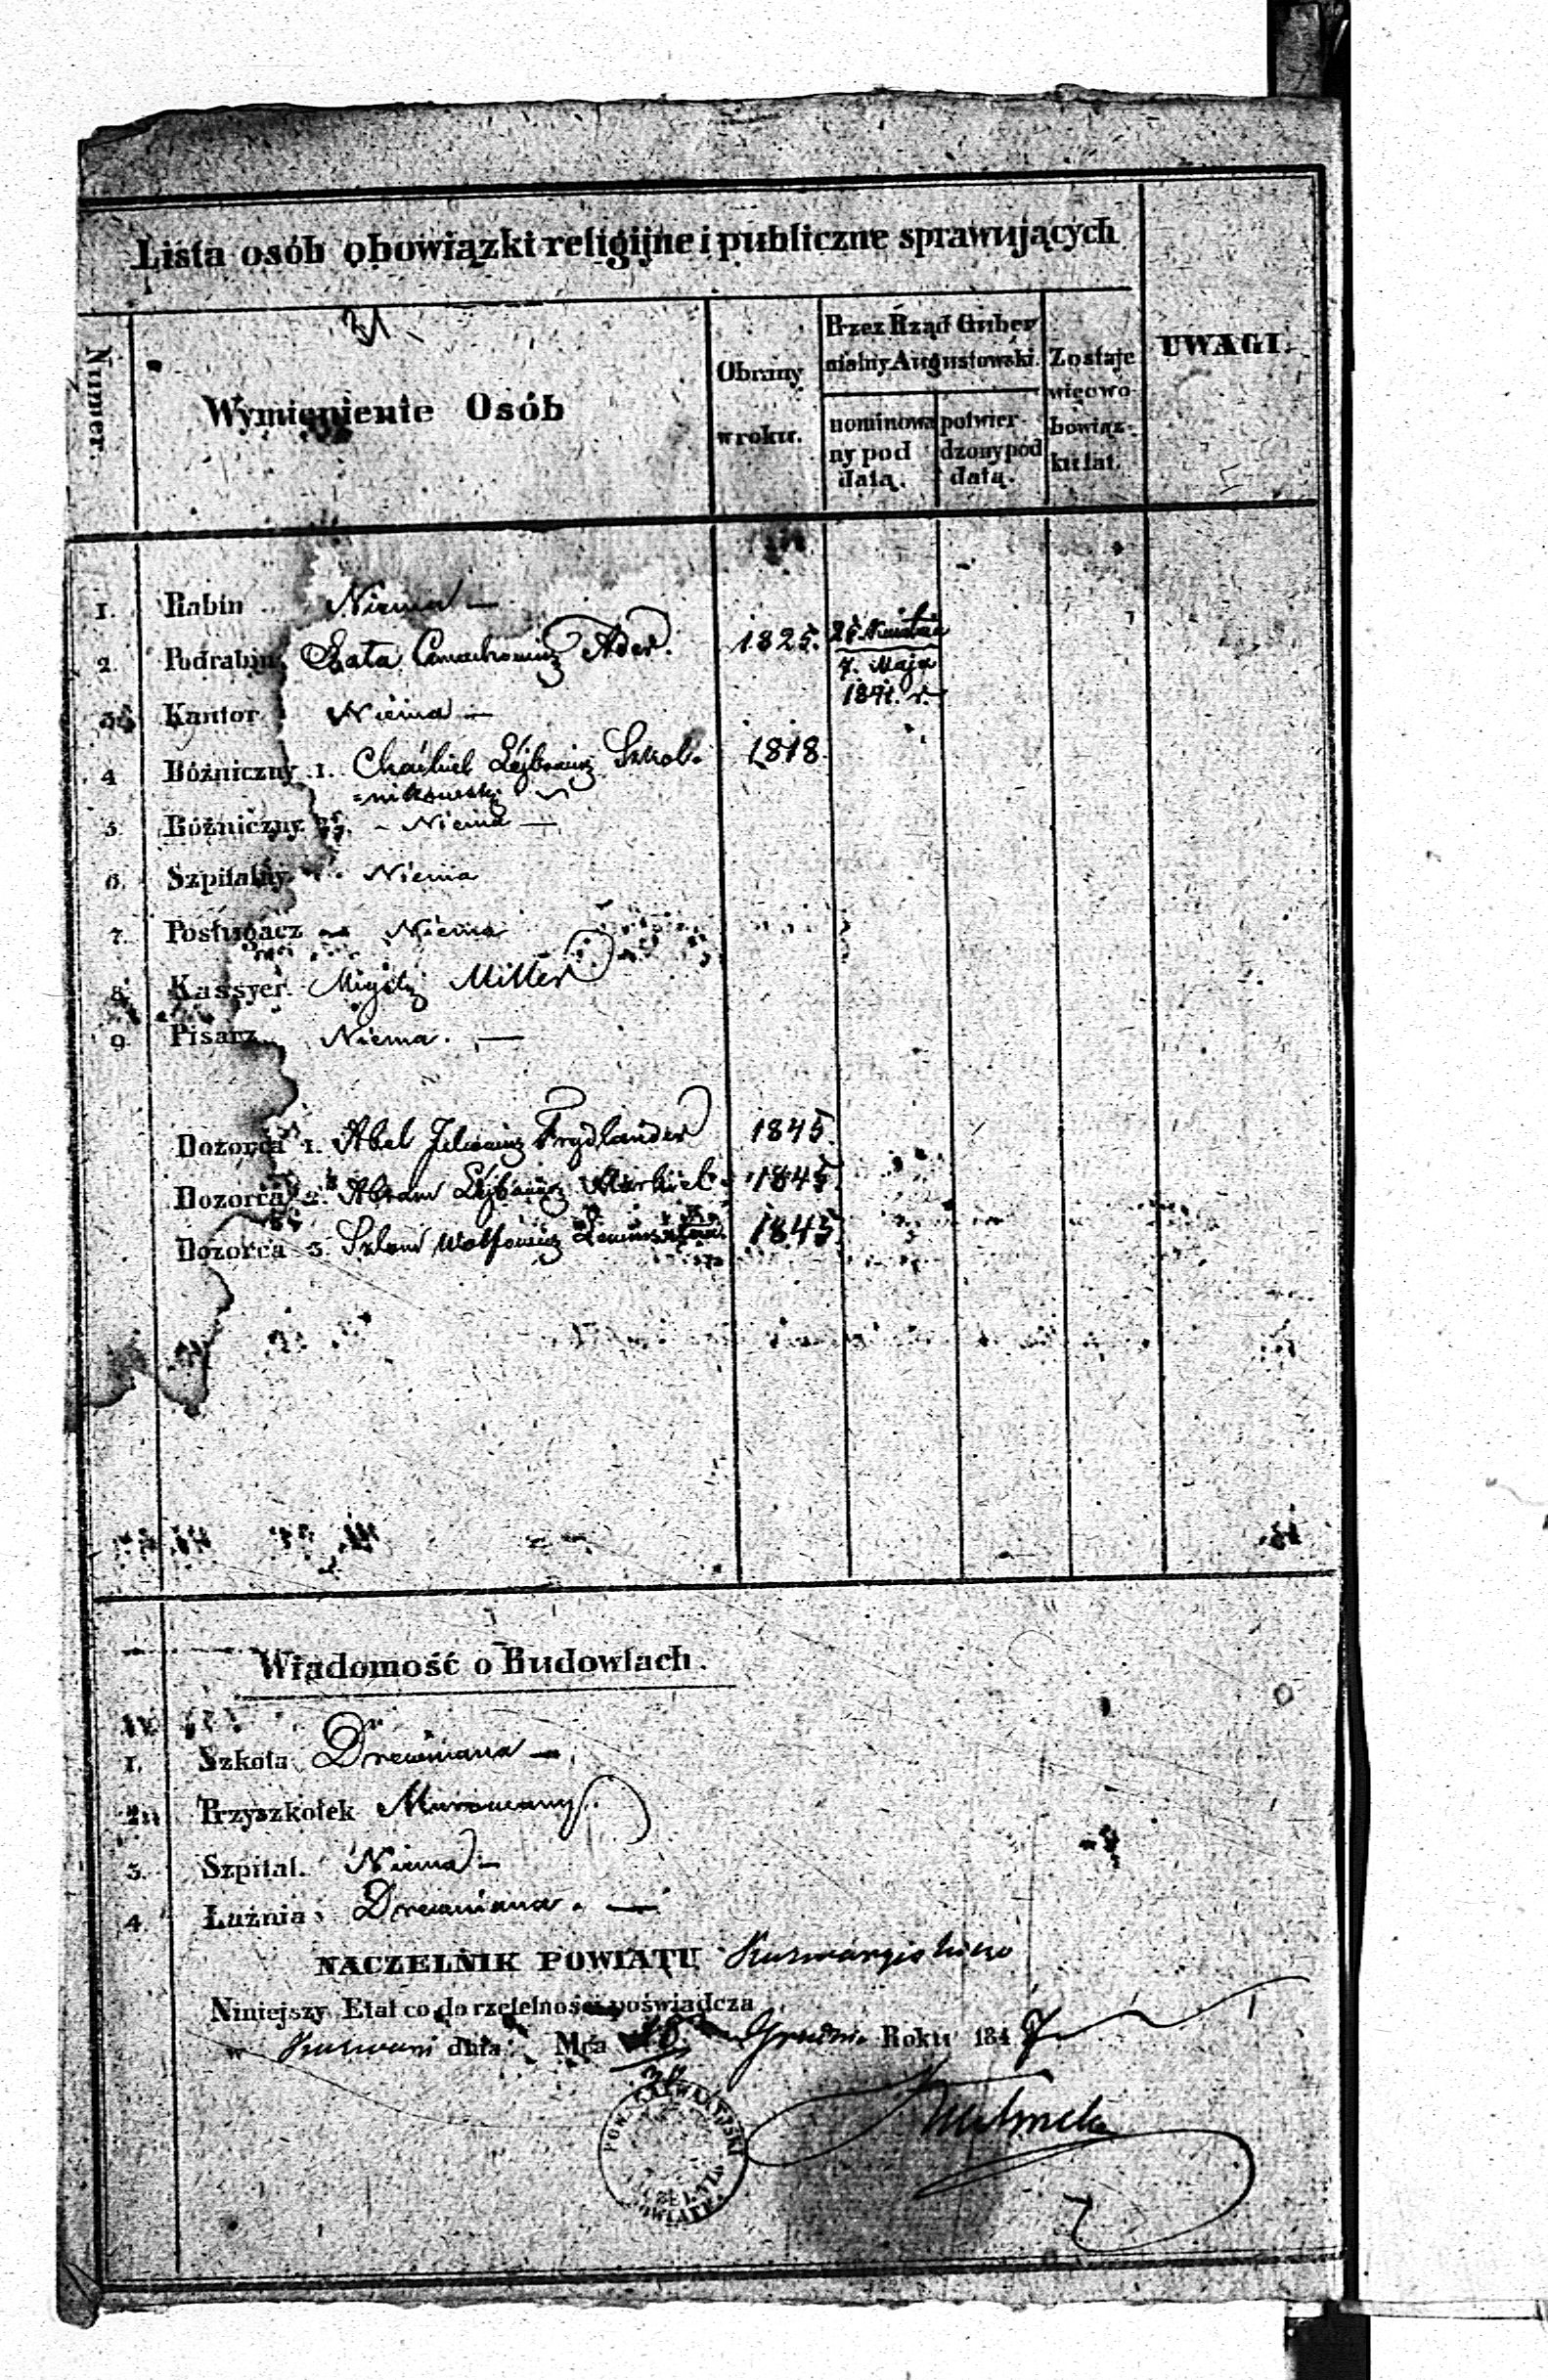 Lista osób obowiązki religijne i publiczne sprawujących
Numer.
Wymienienie Osób
Obrany
w roku.
Przez Rząd Guber
nialny Augustowski.
nominowa
ny pod
datą.
potwier-
dzony pod
datą.
Zostaje
więc w o-
bowiąz-
ku lat.
UWAGI.
1. Rabin Niema —
2. Podrabin Ader. 1825. 
7. Maja
184 r.
3. Kantor Niema —
4 Bóźniczny 1. Lejbowicz Szkol- 1818
=nikowski
5. Bóźniczny 2. - Niema —
6. Szpitalny Niema
7. Posługacz — Niema
8. Kassyer. Miller
9. Pisarz Niema. —
Dozorca 1. Abel Frydlander 1845.
Dozorca 2. Abram Lejbowicz 1845.
Dozorca 3. Szlom Wolfowicz 1845.
Wiadomość o Budowlach.
1. Szkoła Drewniana —
2. Przyszkołek Murowany.
3. Szpital. Niema —
4. Łaźnia Drewniana. —
NACZELNIK POWIATU
Niniejszy Etat co do rzetelności poświadcza
w dnia Mca Grudnia Roku 1847
POW. KALWARYJSKI